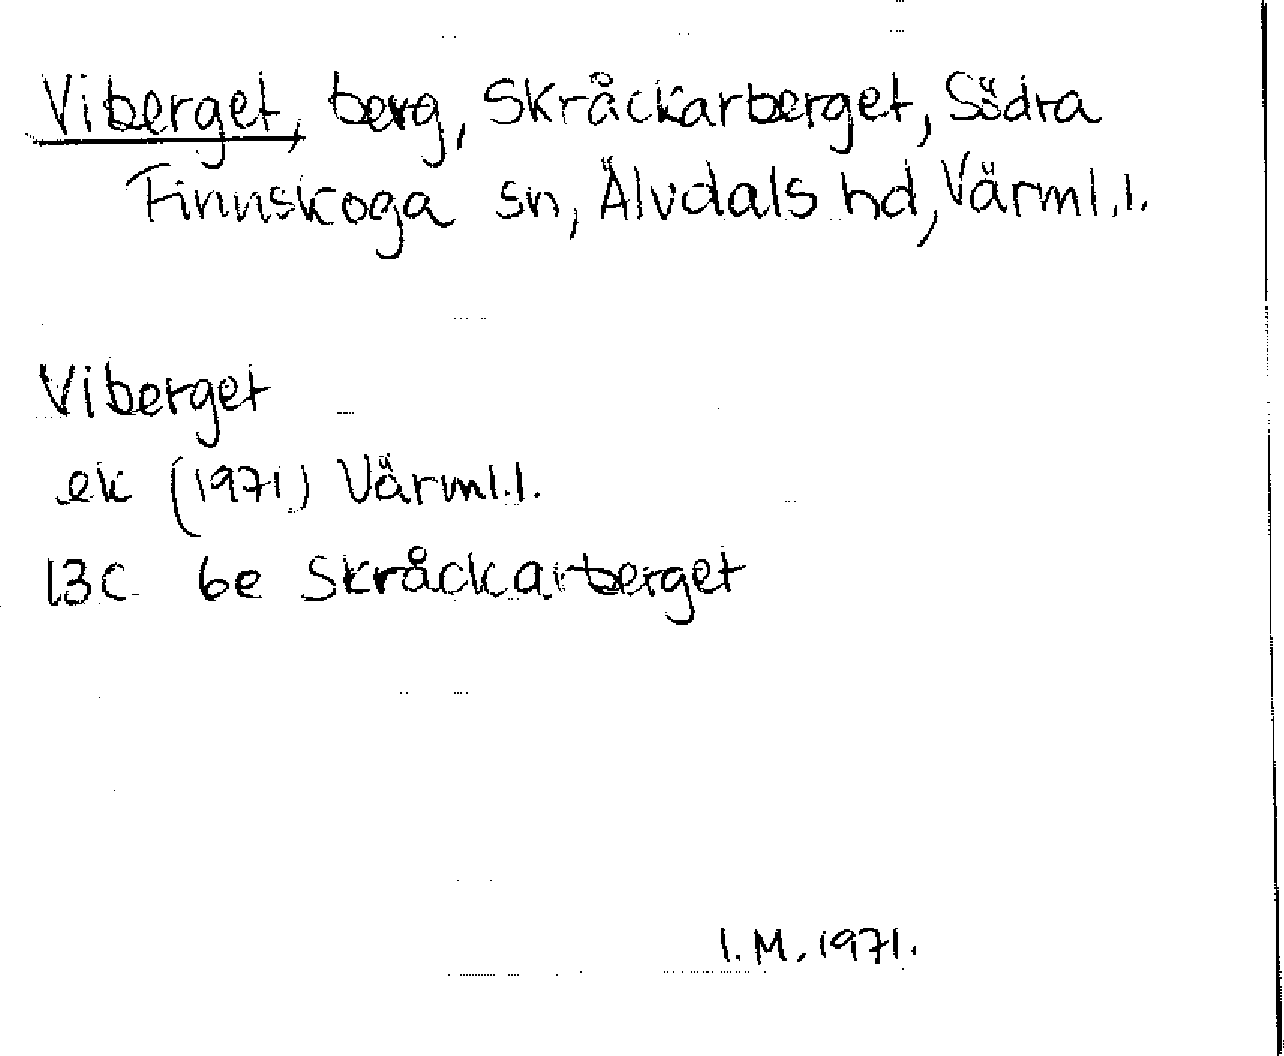 Viberget, berg, Skråckarberget, Södra
Finnskoga sn, Älvdals hd, Värml.l.
Viberget
ek (1971) Värml.l.
13C 6e Skråckarberget
I.M. 1971.